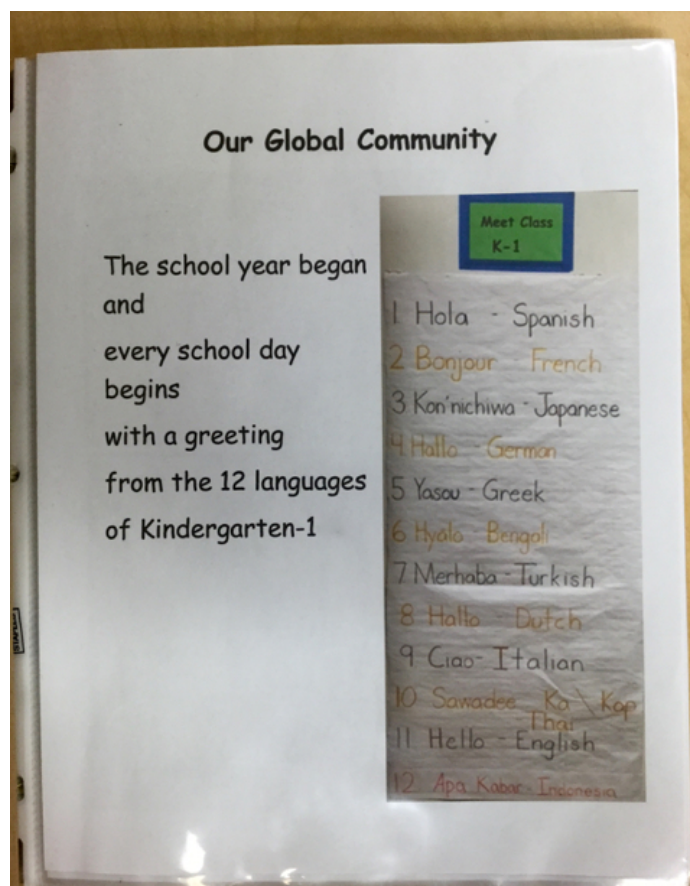 Our Global Community
The school year began
and
every school day
begins
with a greeting
from the 12 languages
of Kindergarten-1
Meet Class
K-1
1 Hola - Spanish
2 Bonjour - French
3 Kon'nichiwa - Japanese
4 Hallo - German
5 Yasou - Greek
6 Hyalo Bengali
7 Merhaba - Turkish
8 Hallo - Dutch
9 Ciao - Italian
10 Sawadee Ka \ Kop
- Thai
11 Hello - English
12. Apa Kabar - Indonesia